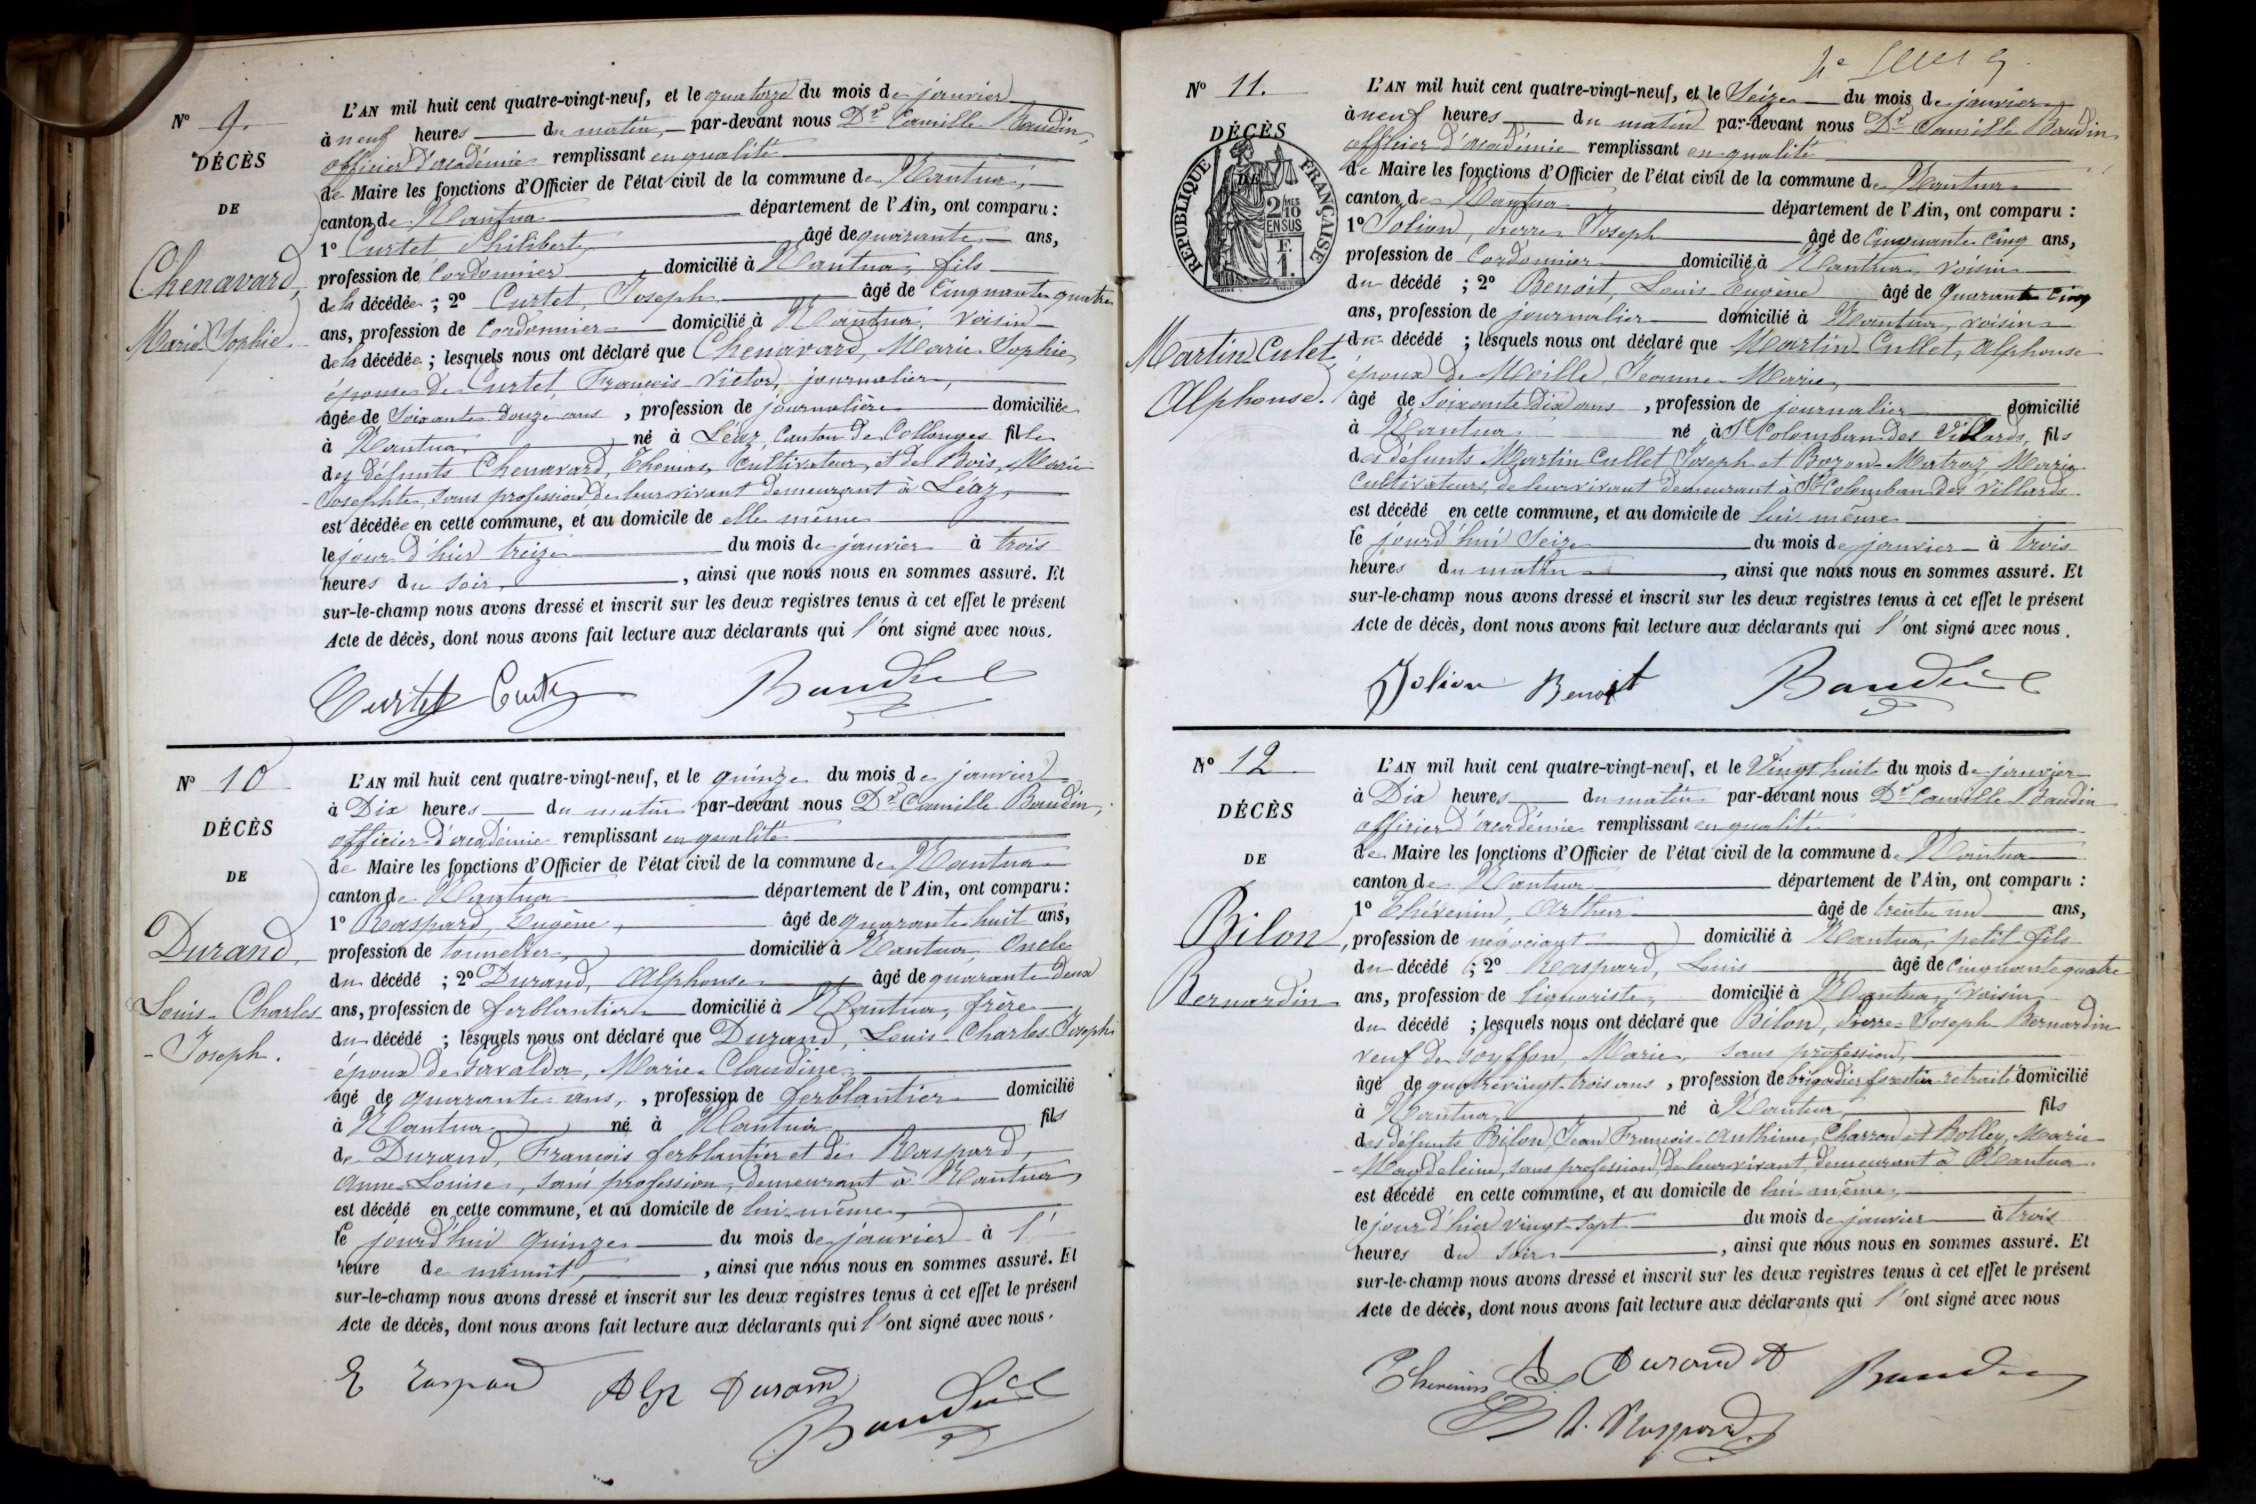 Nº 9.
DÉCÈS
DE
Chenavard,
Marie Sophie.
L'AN mil huit cent quatre-vingt-neuf, et le quatorze du mois de janvier
à neuf heures du matin, par-devant nous Dr Camille Baudin,
officier d'académie remplissant en qualité
de Maire les fonctions d'Officier de l'état civil de la commune de Nantua,
canton de Nantua département de l'Ain, ont comparu :
1º Curtet Philibert, âgé de quarante ans,
profession de Cordonnier domicilié à Nantua, fils
de la décédée ; 2º Curtet, Joseph âgé de Cinquante quatre
ans, profession de Cordonnier domicilié à Nantua, voisin
de la décédée ; lesquels nous ont déclaré que Chenavard, Marie Sophie,
épouse de Curtet, François Victor, journalier,
âgée de Soixante douze ans, profession de journalière domiciliée
à Nantua, né à Léaz, Canton de Collonges fille
des défunts Chenavard, Thomas, Cultivateur, et de Bois, Marie
Josephte, sans profession, de leur vivant demeurant à Léaz,
est décédée en cette commune, et au domicile de elle même
le jour d'hier treize du mois de janvier à trois
heures du soir, ainsi que nous nous en sommes assuré. Et
sur-le-champ nous avons dressé et inscrit sur les deux registres tenus à cet effet le présent
Acte de décès, dont nous avons fait lecture aux déclarants qui l'ont signé avec nous.
Curtet Curtet Baudin
Nº 10
DÉCÈS
DE
Durand,
Louis Charles
- Joseph.
L'AN mil huit cent quatre-vingt-neuf, et le quinze du mois de janvier
à Dix heures du matin par-devant nous Dr Camille Baudin,
officier d'académie remplissant en qualité
de Maire les fonctions d'Officier de l'état civil de la commune de Nantua
canton de Nantua département de l'Ain, ont comparu :
1º Raspard, Eugène, âgé de quarante huit ans,
profession de tonnelier, domicilié à Nantua, Oncle
du décédé ; 2º Durand, Alphonse âgé de quarante deux
ans, profession de ferblantier domicilié à Nantua, frère
du décédé ; lesquels nous ont déclaré que Durand, Louis Charles Joseph
époux de Savalda, Marie Claudine,
âgé de quarante ans, profession de ferblantier domicilié
à Nantua né à Nantua fils
de Durand, François ferblantier et de Raspard,
Anne Louise, sans profession, demeurant à Nantua
est décédé en cette commune, et au domicile de lui même,
le jourd'hui quinze du mois de janvier à l'
heure de minuit, ainsi que nous nous en sommes assuré. Et
sur-le-champ nous avons dressé et inscrit sur les deux registres tenus à cet effet le présent
Acte de décès, dont nous avons fait lecture aux déclarants qui l'ont signé avec nous.
E Raspard Alp Durand
Baudin
Nº 11.
DÉCÈS
RÉPUBLIQUE FRANÇAISE
2/10
EN SUS
F.
1.
Martin Culet,
Alphonse.
L'AN mil huit cent quatre-vingt-neuf, et le Seize du mois de janvier
à neuf heures du matin par-devant nous Dr Camille Baudin
officier d'académie remplissant en qualité
de Maire les fonctions d'Officier de l'état civil de la commune de Nantua
canton de Nantua département de l'Ain, ont comparu :
1º Jolion, Pierre Joseph âgé de Cinquante Cinq ans,
profession de Cordonnier domicilié à Nantua, voisin
du décédé ; 2º Benoit, Louis Eugène âgé de quarante Cinq
ans, profession de journalier domicilié à Nantua, voisin
du décédé ; lesquels nous ont déclaré que Martin Cullet, Alphonse
époux de Moille, Jeanne Marie,
âgé de soixante dix ans, profession de journalier domicilié
à Nantua né à St Colomban des Villards, fils
des défunts Martin Cullet Joseph et Bozon Matraz, Marie
Cultivateurs, de leur vivant demeurant à St Colomban des Villards
est décédé en cette commune, et au domicile de lui même
le jourd'hui Seize du mois de janvier à trois
heures du matin, ainsi que nous nous en sommes assuré. Et
sur-le-champ nous avons dressé et inscrit sur les deux registres tenus à cet effet le présent
Acte de décès, dont nous avons fait lecture aux déclarants qui l'ont signé avec nous.
Jolion Benoit Baudin
Nº 12
DÉCÈS
DE
Bilon,
Bernardin
L'AN mil huit cent quatre-vingt-neuf, et le Vingt huit du mois de janvier
à Dix heures du matin par-devant nous Dr Camille Baudin
officier d'académie remplissant en qualité
de Maire les fonctions d'Officier de l'état civil de la commune de Nantua
canton de Nantua département de l'Ain, ont comparu :
1º Thévenin, Arthur âgé de trente un ans,
profession de négociant domicilié à Nantua, petit fils
du décédé ; 2º Raspard, Louis âgé de cinquante quatre
ans, profession de liquoriste, domicilié à Nantua, voisin
du décédé ; lesquels nous ont déclaré que Bilon, Pierre Joseph Bernardin
veuf de Goyffon, Marie, sans profession,
âgé de quatrevingt trois ans, profession de brigadier forestier retraité domicilié
à Nantua, né à Nantua, fils
des défunts Bilon, Jean François Anthime, Charron et Bolley, Marie
- Magdeleine, sans profession, de leur vivant, demeurant à Nantua.
est décédé en cette commune, et au domicile de lui même,
le jour d'hier vingt sept du mois de janvier à trois
heures du soir, ainsi que nous nous en sommes assuré. Et
sur-le-champ nous avons dressé et inscrit sur les deux registres tenus à cet effet le présent
Acte de décès, dont nous avons fait lecture aux déclarants qui l'ont signé avec nous
Thevenin A Durand A Baudin
Raspard